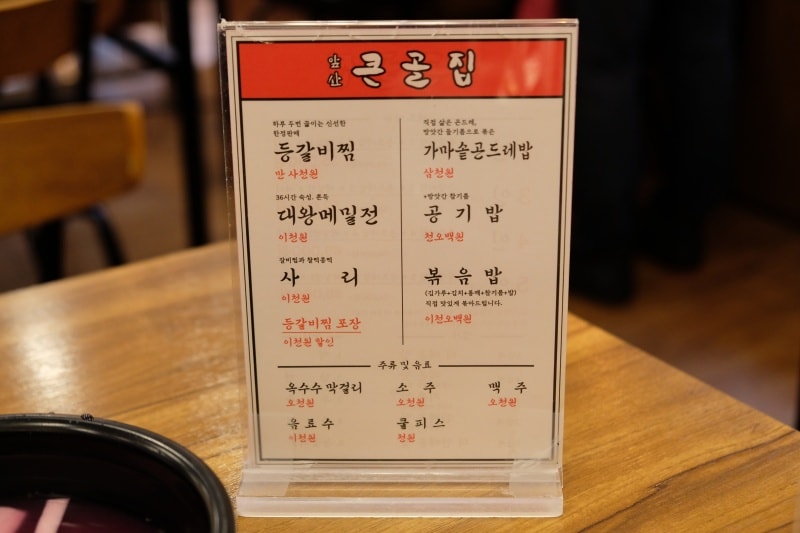 앞산
큰골집
하루 두번 끓이는 신선한
한정판매
등갈비찜
만 사천원
36시간 숙성. 쫀득
대왕메밀전
이천원
갈비찜과 찰떡궁떡
사 리
이천원
등갈비찜 포장
이천원 할인
직접 삶은 곤드레,
방앗간 들기름으로 볶은
가마솥곤드레밥
삼천원
+방앗간 참기름
공기밥
천오백원
볶음밥
(김가루+김치+동백+참기름+밥)
직접 맛있게 볶아드립니다.
이천오백원
주류 및 음료
옥수수 막걸리 소 주 맥 주
오천원 오천원 오천원
음료수 쿨피스
이천원 천원